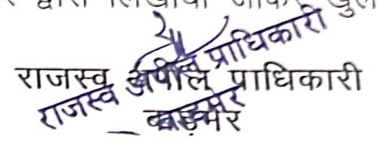 द्वारा लिखाया जाकर खुले
राजस्व अपील प्राधिकारी
राजस्व अपील प्राधिकारी
बाड़मेर
बाड़मेर